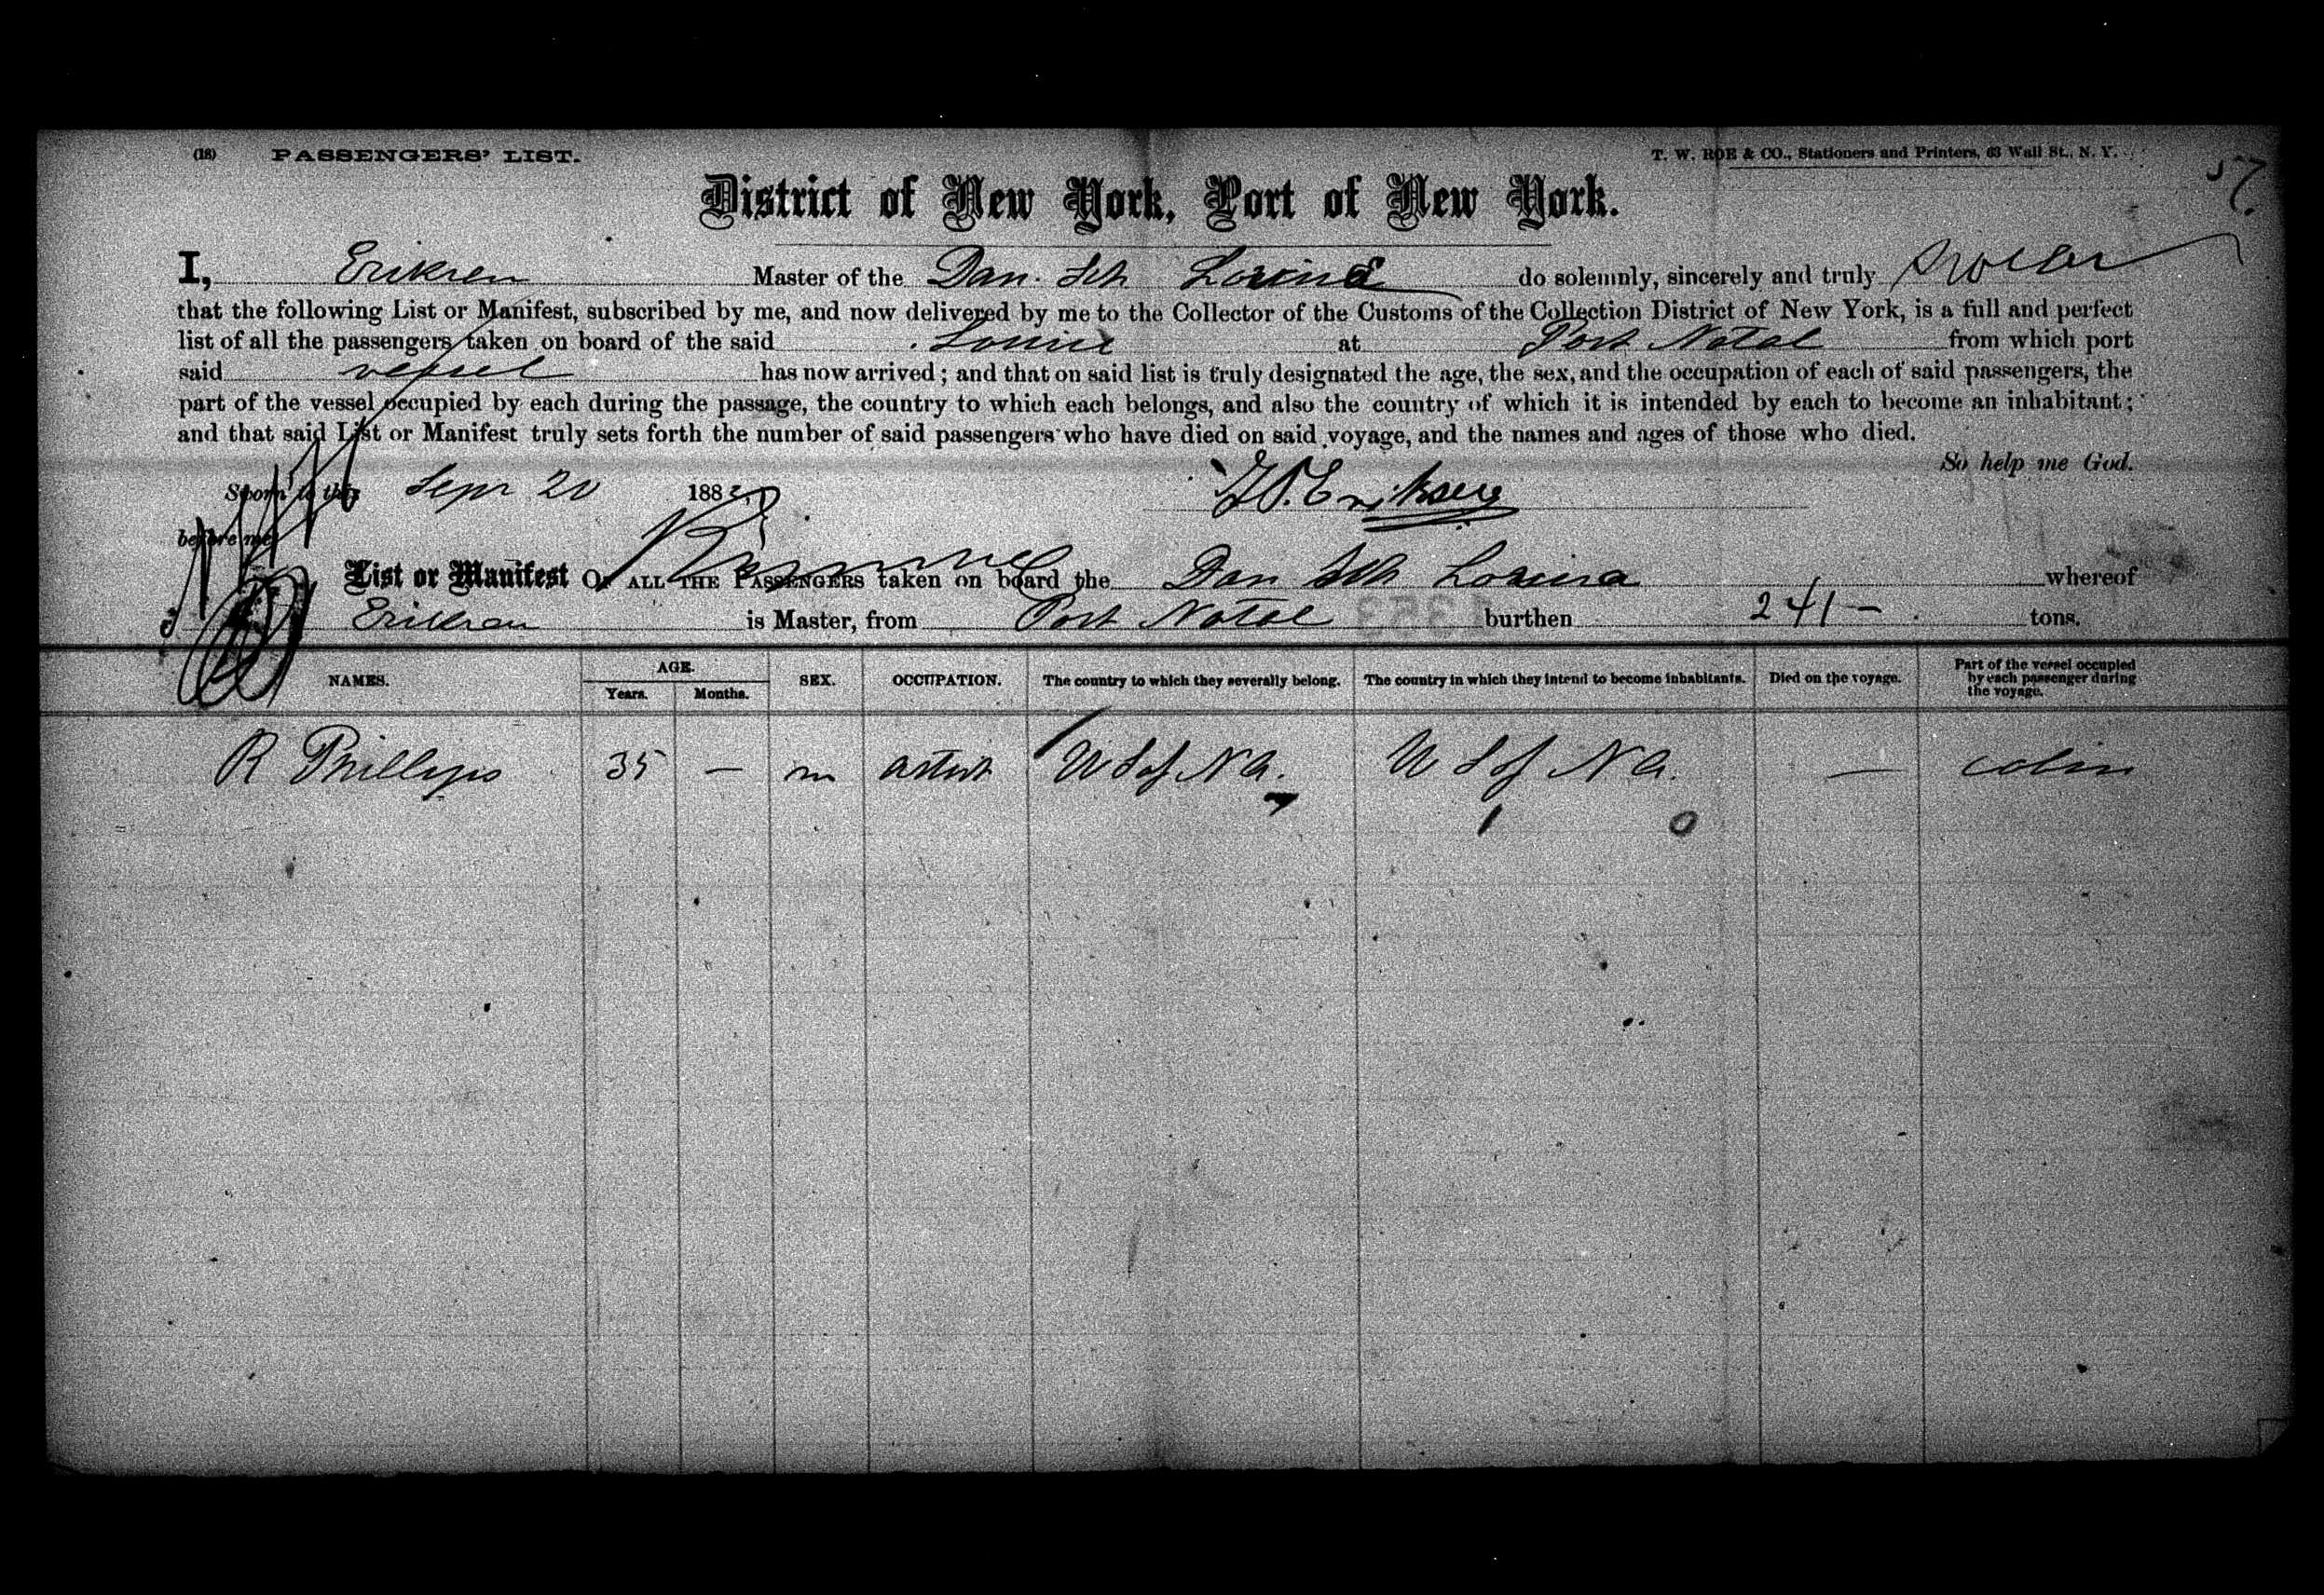 (18) PASSENGERS' LIST. T. W. ROE & CO., Stationers and Printers, 63 Wall St., N. Y.
57.
District of New York, Port of New York.
I, Eriksen Master of the Dan. Sch do solemnly, sincerely and truly swear
that the following List or Manifest, subscribed by me, and now delivered by me to the Collector of the Customs of the Collection District of New York, is a full and perfect
list of all the passengers taken on board of the said at Port Natal from which port
said vessel has now arrived; and that on said list is truly designated the age, the sex, and the occupation of each of said passengers, the
part of the vessel occupied by each during the passage, the country to which each belongs, and also the country of which it is intended by each to become an inhabitant;
and that said List or Manifest truly sets forth the number of said passengers who have died on said voyage, and the names and ages of those who died.
So help me God.
Sworn to this Sepr 20 188
before me
List or Manifest OF ALL THE PASSENGERS taken on board the Dan Sch whereof
Eriksen is Master, from Port Natal burthen 241 – tons.
NAMES. AGE. Years. Months. SEX. OCCUPATION. The country to which they severally belong. The country in which they intend to become inhabitants. Died on the voyage. Part of the vessel occupied by each passenger during the voyage.
R Phillips 35 — m artist U S of N A. U S of N A. — cabin
1 0